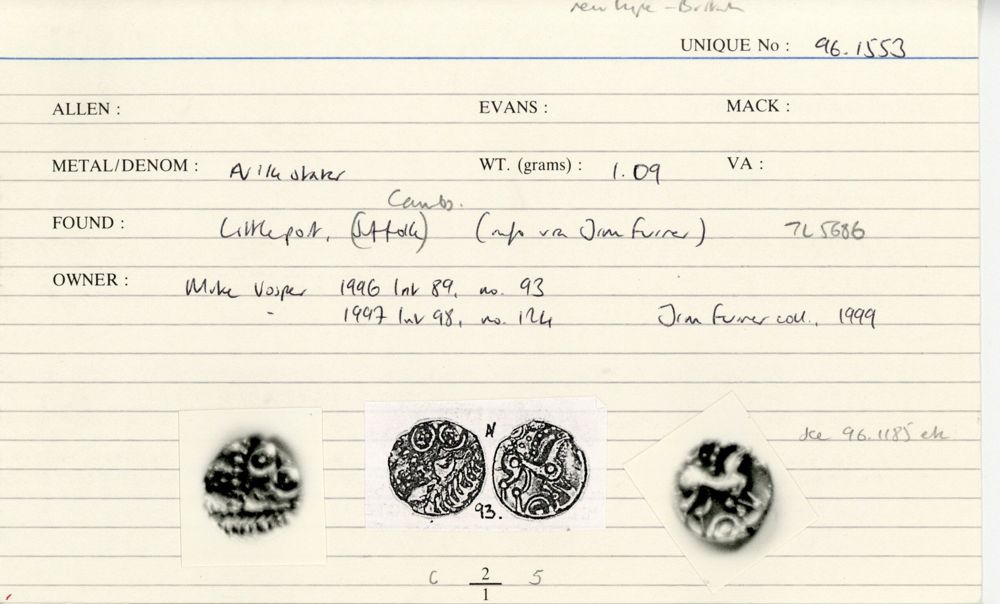 new type - British
UNIQUE No : 96.1553
ALLEN : EVANS : MACK :
METAL/DENOM : WT. (grams) : 1.09 VA :
Cambs.
FOUND : Littleport, (Suffolk) (info via Jim Furner) TL5686
OWNER : Mike Vosper 1996 list 89, no. 93
1997 list 98, no. 124 Jim Furner coll., 1999
N
see 96.1185 etc
93.
C 2 5
1